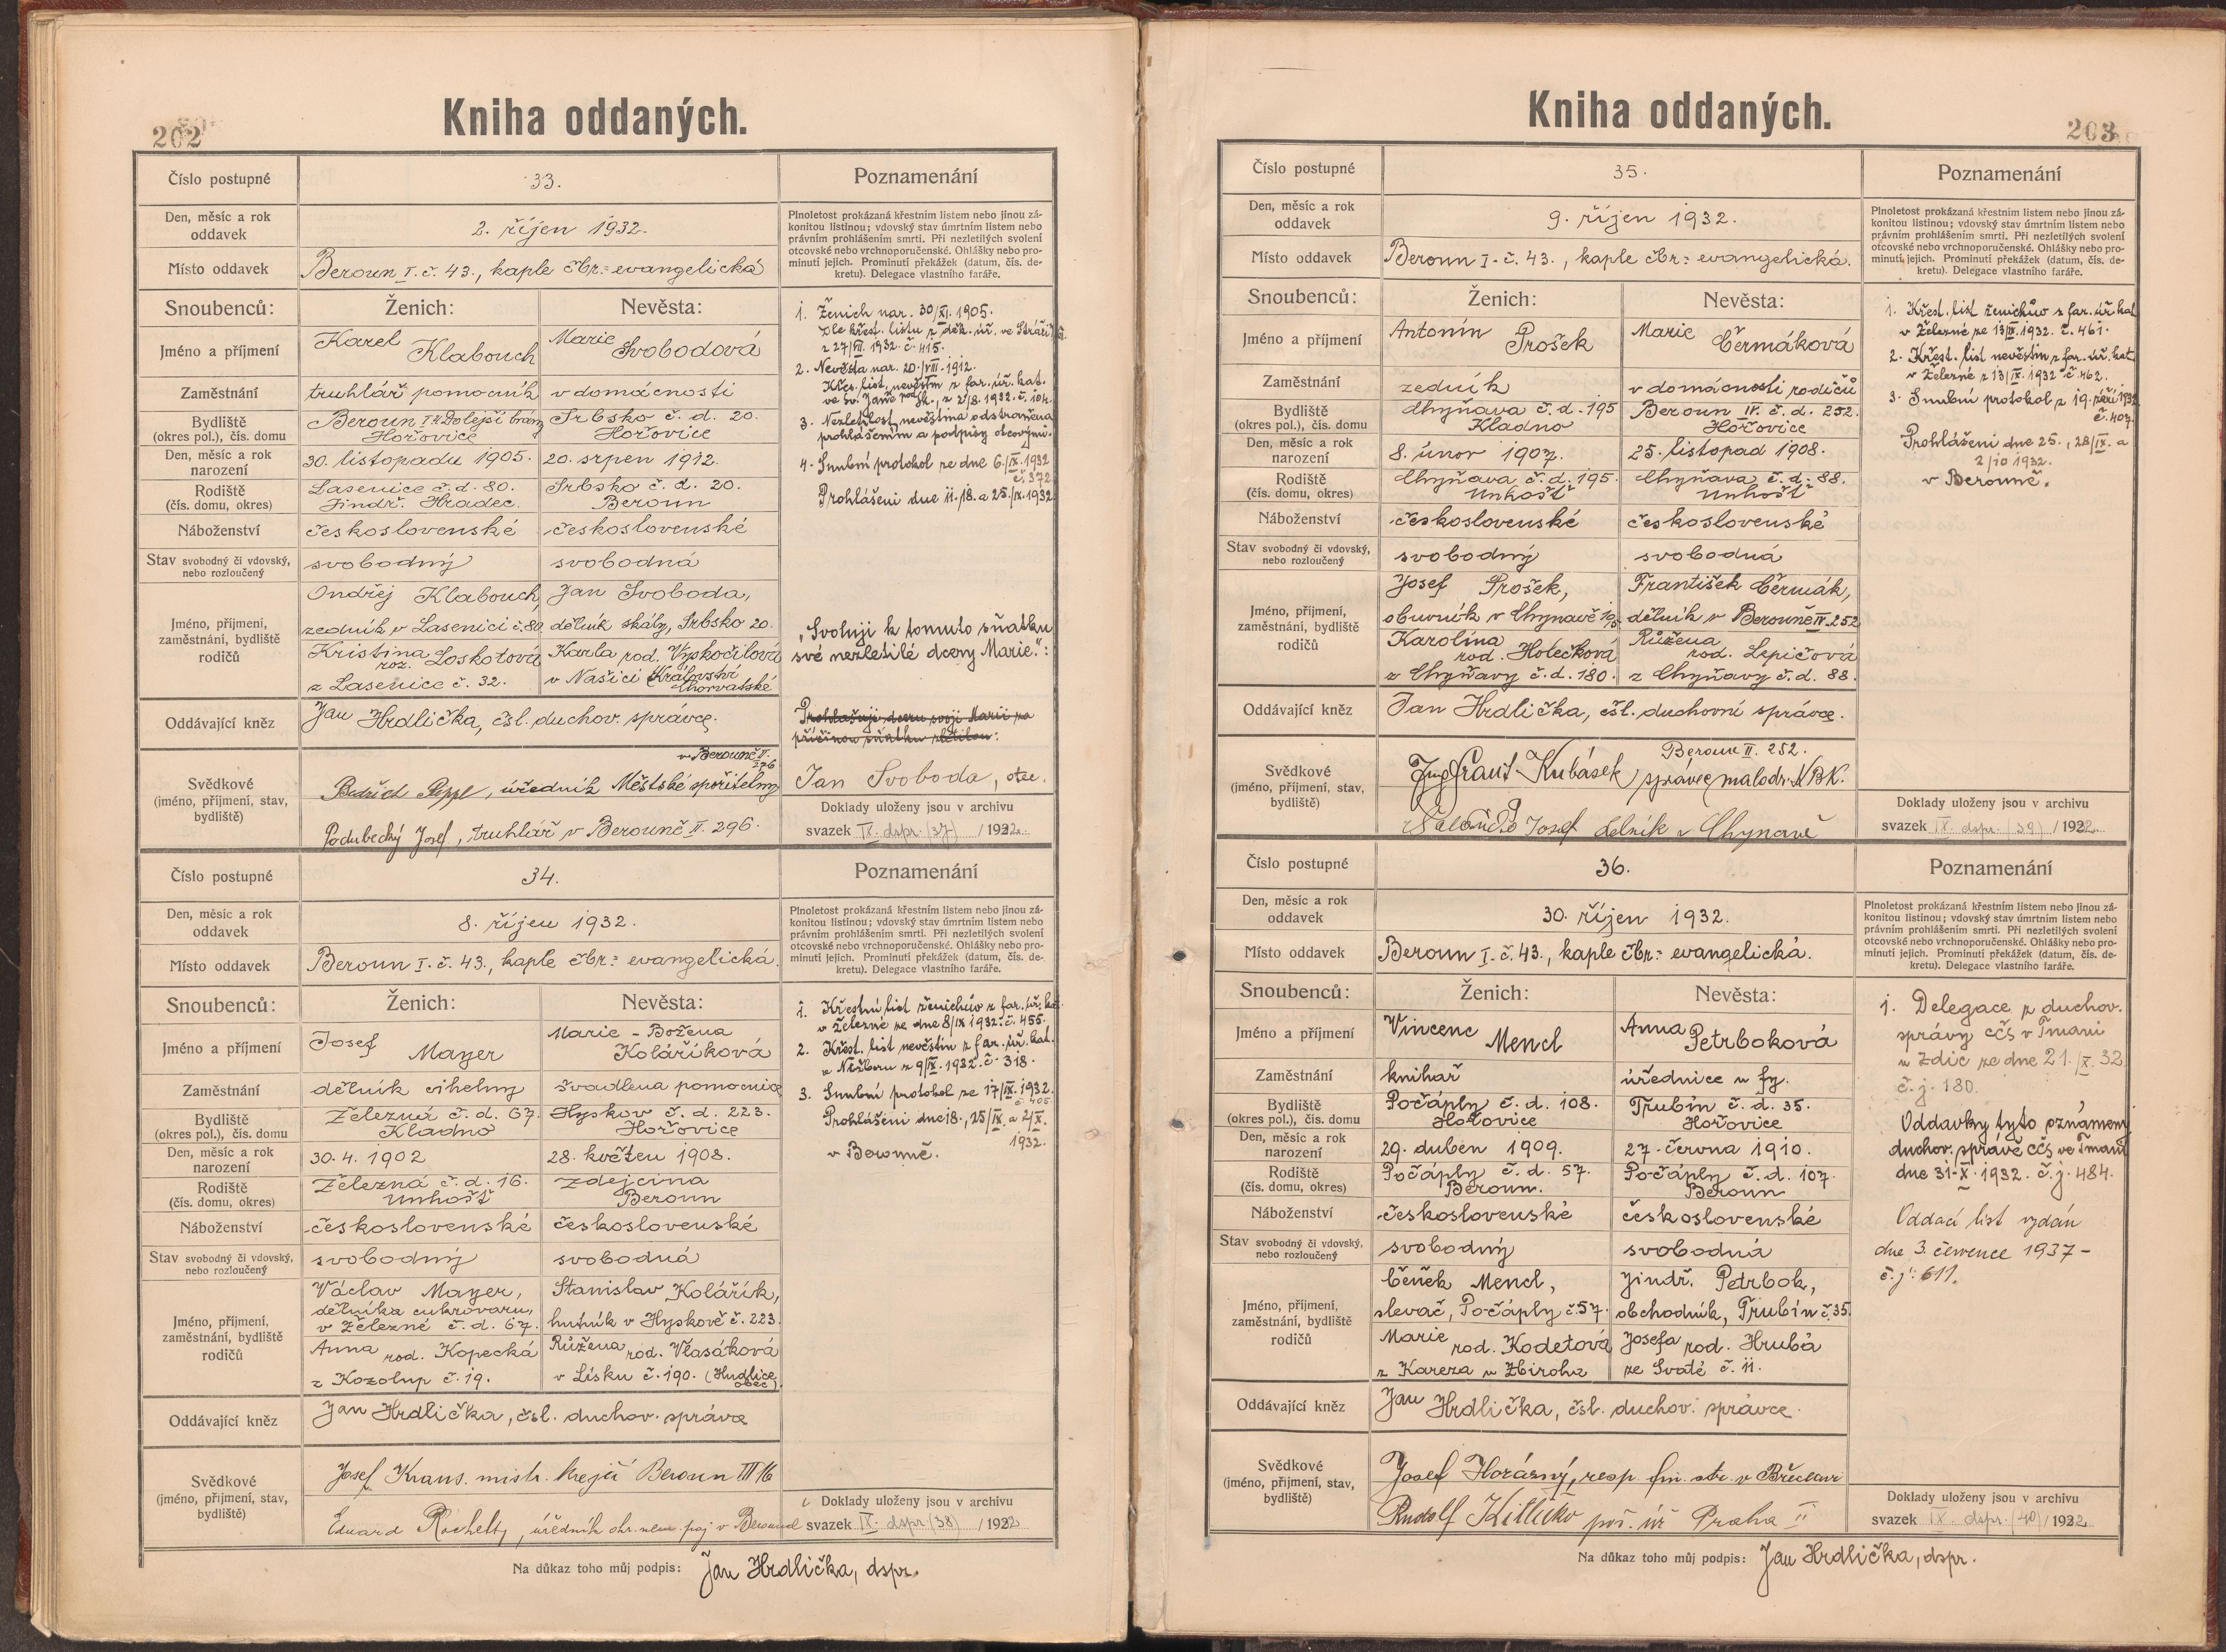 202
Kniha oddaných.
Číslo postupné
33.
Poznamenání
Den, měsíc a rok
oddavek
2. říjen 1932.
Místo oddavek
Beroun I. č. 43., kaple čbr: evangelická
Plnoletost prokázaná křestním listem nebo jinou zá-
konitou listinou; vdovský stav úmrtním listem nebo
právním prohlášením smrti. Při nezletilých svolení
otcovské nebo vrchnoporučenské. Ohlášky nebo pro-
minutí jejich. Prominutí překážek (datum, čís. de-
kretu). Delegace vlastního faráře.
Snoubenců:
Ženich:
Nevěsta:
Jméno a příjmení
Karel
Klabouch
Marie
Svobodová
Zaměstnání
truhlář pomocník
v domácnosti
Bydliště
(okres pol.), čís. domu
Beroun I Dolejší brána
Hořovice
Srbsko č. d. 20.
Hořovice
Den, měsíc a rok
narození
30. listopadu 1905.
20. srpen 1912.
Rodiště
(čís. domu, okres)
Lasenice č. d. 80.
Jindř. Hradec.
Srbsko č. d. 20.
Beroun
Náboženství
československé
československé
Stav svobodný či vdovský,
nebo rozloučený
svobodný
svobodná
Jméno, příjmení,
zaměstnání, bydliště
rodičů
Ondřej Klabouch,
zedník v Lasenici č. 80
Kristina
roz. Loskotová
z Lasenice č. 32.
Jan Svoboda,
dělník skály, Srbsko 20.
Karla rod. Vyskočilová
v Našici Království
Chorvatské
1. Ženich nar. 30/XI. 1905.
Dle křest. listu z děk. úř. ve Stráži
z 27/VII. 1932. č. 415.
2. Nevěsta nar. 20./VIII. 1912.
Křes. list, nevěstin z far. úř. kat.
ve sv. Janě pod Sk., z 2/8. 1932. č. 104.
3. Nezletilost nevěstina odstraněna
prohlášením a podpisy otcovými.
4. Snubní protokol ze dne 6./IX. 1932
č. 372
Prohlášení dne 11. 18. a 25./IX. 1932
„Svoluji k tomuto sňatku
své nezletilé dcery Marie.":
Prohlašuji dceru svoji Marii za
příčinou sňatku zletilou:
Jan Svoboda, otec.
Oddávající kněz
Jan Hrdlička, čsl. duchov. správce.
Svědkové
(jméno, příjmení, stav,
bydliště)
v Berouně II.
276
Bedřich Peppl, úředník Městské spořitelny
Podubecký Josef, truhlář v Berouně II. 296.
Doklady uloženy jsou v archivu
svazek IX. dspr. (37) / 1932.
Číslo postupné
34.
Poznamenání
Den, měsíc a rok
oddavek
8. říjen 1932.
Místo oddavek
Beroun I. č. 43., kaple čbr: evangelická.
Plnoletost prokázaná křestním listem nebo jinou zá-
konitou listinou; vdovský stav úmrtním listem nebo
právním prohlášením smrti. Při nezletilých svolení
otcovské nebo vrchnoporučenské. Ohlášky nebo pro-
minutí jejich. Prominutí překážek (datum, čís. de-
kretu). Delegace vlastního faráře.
Snoubenců:
Ženich:
Nevěsta:
Jméno a příjmení
Josef
Mayer
Marie - Božena
Koláříková
Zaměstnání
dělník cihelny
švadlena pomocnice
Bydliště
(okres pol.), čís. domu
Železná č. d. 67.
Kladno
Hyskov č. d. 223.
Hořovice
Den, měsíc a rok
narození
30. 4. 1902
28. květen 1908.
Rodiště
(čís. domu, okres)
Železná č. d. 16.
Unhošť
Zdejcina
Beroun
Náboženství
československé
československé
Stav svobodný či vdovský,
nebo rozloučený
svobodný
svobodná
Jméno, příjmení,
zaměstnání, bydliště
rodičů
Václav Mayer,
dělníka cukrovaru,
v Železné č. d. 67.
Anna rod. Kopecká
z Kozolup č. 19.
Stanislav Kolářík,
hutník v Hyskově č. 223.
Růžena rod. Vlasáková
v Lísku č. 190. (Hudlice
obec).
1. Křestní list ženichův z far. úř. kat.
v Železné ze dne 8/IX 1932. č. 455.
2. Křest. list nevěstin z far. úř. kat.
v Nižboru z 9/IX. 1932. č. 318.
3. Snubní protokol ze 17/IX. 1932.
č 405.
Prohlášení dne 18., 25/IX. a 2/X.
1932.
v Berouně.
Oddávající kněz
Jan Hrdlička, čsl. duchov. správce
Svědkové
(jméno, příjmení, stav,
bydliště)
Josef Kraus. mistr. krejčí Beroun III 16
Eduard Rochelt, úředník okr. nem. poj v Berouně
Doklady uloženy jsou v archivu
svazek IX. dspr (38) / 1932
Na důkaz toho můj podpis: Jan Hrdlička, dspr.
203
Kniha oddaných.
Číslo postupné
35.
Poznamenání
Den, měsíc a rok
oddavek
9. říjen 1932.
Místo oddavek
Beroun I. č. 43., kaple čbr: evangelická.
Plnoletost prokázaná křestním listem nebo jinou zá-
konitou listinou; vdovský stav úmrtním listem nebo
právním prohlášením smrti. Při nezletilých svolení
otcovské nebo vrchnoporučenské. Ohlášky nebo pro-
minutí jejich. Prominutí překážek (datum, čís. de-
kretu). Delegace vlastního faráře.
Snoubenců:
Ženich:
Nevěsta:
Jméno a příjmení
Antonín
Prošek
Marie
Čermáková
Zaměstnání
zedník
v domácnosti rodičů
Bydliště
(okres pol.), čís. domu
Chyňava č. d. 195
Kladno
Beroun IV. č. d. 252.
Hořovice
Den, měsíc a rok
narození
8. únor 1907.
25. listopad 1908.
Rodiště
(čís. domu, okres)
Chyňava č. d. 195.
Unhošť
Chyňava č. d. 88.
Unhošť
Náboženství
československé
československé
Stav svobodný či vdovský,
nebo rozloučený
svobodný
svobodná
Jméno, příjmení,
zaměstnání, bydliště
rodičů
Josef Prošek,
obuvník v Chyňavě 195
Karolína
rod. Holečková
z Chyňavy č. d. 180.
František Čermák,
dělník v Berouně IV. 252
Růžena
rod. Lepičová
z Chyňavy č. d. 88.
1. Křest. list ženichův z far. úř. kat
v Železné ze 13/IX. 1932. č. 461.
2. Křest. list nevěstin z far. úř. kat.
v Železné z 13/IX. 1932 č. 462.
3. Snubní protokol z 19. září 1932
č. 407.
Prohlášení dne 25., 28/IX. a
2/10 1932.
v Berouně.
Oddávající kněz
Jan Hrdlička, čsl. duchovní správce.
Svědkové
(jméno, příjmení, stav,
bydliště)
Beroun II. 252.
Frant. Kubásek, správce malodr. N.B.K.
Josef dělník v Chyňavě
Doklady uloženy jsou v archivu
svazek IX. dspr. (39) / 1932.
Číslo postupné
36.
Poznamenání
Den, měsíc a rok
oddavek
30. říjen 1932.
Místo oddavek
Beroun I. č. 43., kaple čbr: evangelická.
Plnoletost prokázaná křestním listem nebo jinou zá-
konitou listinou; vdovský stav úmrtním listem nebo
právním prohlášením smrti. Při nezletilých svolení
otcovské nebo vrchnoporučenské. Ohlášky nebo pro-
minutí jejich. Prominutí překážek (datum, čís. de-
kretu). Delegace vlastního faráře.
Snoubenců:
Ženich:
Nevěsta:
Jméno a příjmení
Vincenc
Mencl
Anna
Petrboková
Zaměstnání
knihař
úřednice u fy.
Bydliště
(okres pol.), čís. domu
Počáply č. d. 108.
Hořovice
Trubín č. d. 35.
Hořovice
Den, měsíc a rok
narození
29. duben 1909.
27. června 1910.
Rodiště
(čís. domu, okres)
Počáply č. d. 57.
Beroun.
Počáply č. d. 107.
Beroun
Náboženství
československé
československé
Stav svobodný či vdovský,
nebo rozloučený
svobodný
svobodná
Jméno, příjmení,
zaměstnání, bydliště
rodičů
Čeněk Mencl,
slevač, Počáply č 57.
Marie rod. Kodetová
z Kareza u Zbiroha
Jindř. Petrbok,
obchodník, Trubín č. 35.
Josefa rod. Hrubá
ze Svaté č. 11.
1. Delegace z duchov.
správy CČS v Tmani
u Zdic ze dne 21./X. 32
č. j. 180.
Oddavky tyto oznámeny
duchov. správě CČS ve Tmani
dne 31-X. 1932. č. j. 484.
Oddací list vydán
dne 3. července 1937 -
č. j: 611.
Oddávající kněz
Jan Hrdlička, čsl. duchov. správce.
Svědkové
(jméno, příjmení, stav,
bydliště)
Josef Horázný, resp. fin. str. v Břeclavi
Rudolf poš. úř Praha II
Doklady uloženy jsou v archivu
svazek IX. dspr. (40) / 1932
Na důkaz toho můj podpis: Jan Hrdlička, dspr.